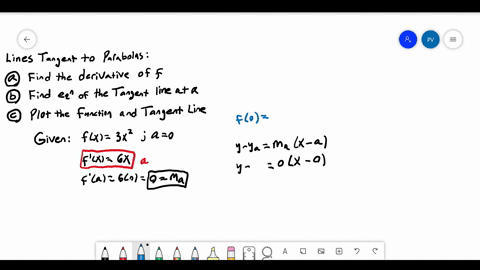 Lines Tangent to Parabolas:
ⓐ Find the derivative of f
ⓑ Find eqⁿ of the Tangent line at a
ⓒ Plot the Function and Tangent Line
Given: f(x) = 3x² ; a=0
f'(x) = 6x a
f'(a) = 6(0) = 0 = mₐ
f(0) =
y-yₐ = mₐ(x-a)
y- = 0(x-0)
PV
A